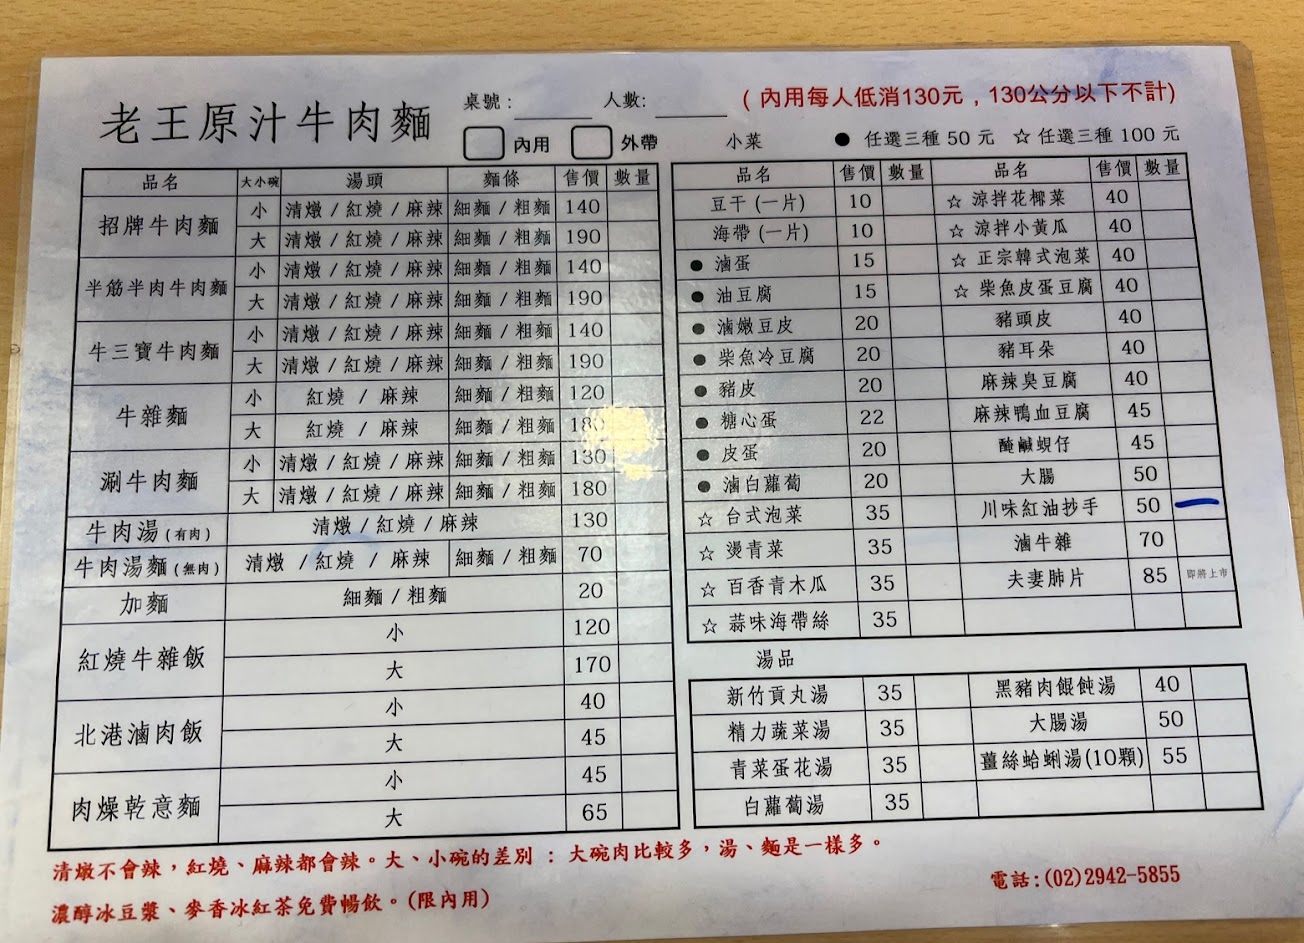 老王原汁牛肉麵
桌號: 人數: (內用每人低消130元，130公分以下不計)
內用 外帶 小菜 ● 任選三種 50 元 ☆ 任選三種 100 元
品名 大小碗 湯頭 麵條 售價 數量
招牌牛肉麵 小 清燉 / 紅燒 / 麻辣 細麵 / 粗麵 140
大 清燉 / 紅燒 / 麻辣 細麵 / 粗麵 190
半筋半肉牛肉麵 小 清燉 / 紅燒 / 麻辣 細麵 / 粗麵 140
大 清燉 / 紅燒 / 麻辣 細麵 / 粗麵 190
牛三寶牛肉麵 小 清燉 / 紅燒 / 麻辣 細麵 / 粗麵 140
大 清燉 / 紅燒 / 麻辣 細麵 / 粗麵 190
牛雜麵 小 紅燒 / 麻辣 細麵 / 粗麵 120
大 紅燒 / 麻辣 細麵 / 粗麵 180
涮牛肉麵 小 清燉 / 紅燒 / 麻辣 細麵 / 粗麵 130
大 清燉 / 紅燒 / 麻辣 細麵 / 粗麵 180
牛肉湯(有肉) 清燉 / 紅燒 / 麻辣 130
牛肉湯麵(無肉) 清燉 / 紅燒 / 麻辣 細麵 / 粗麵 70
加麵 細麵 / 粗麵 20
紅燒牛雜飯 小 120
大 170
北港滷肉飯 小 40
大 45
肉燥乾意麵 小 45
大 65
品名 售價 數量 品名 售價 數量
豆干 (一片) 10 ☆ 涼拌花椰菜 40
海帶 (一片) 10 ☆ 涼拌小黃瓜 40
● 滷蛋 15 ☆ 正宗韓式泡菜 40
● 油豆腐 15 ☆ 柴魚皮蛋豆腐 40
● 滷嫩豆皮 20 豬頭皮 40
● 柴魚冷豆腐 20 豬耳朵 40
● 豬皮 20 麻辣臭豆腐 40
● 糖心蛋 22 麻辣鴨血豆腐 45
● 皮蛋 20 醃鹹蜆仔 45
● 滷白蘿蔔 20 大腸 50
☆ 台式泡菜 35 川味紅油抄手 50
☆ 燙青菜 35 滷牛雜 70
☆ 百香青木瓜 35 夫妻肺片 85 即將上市
☆ 蒜味海帶絲 35
湯品
新竹貢丸湯 35 黑豬肉餛飩湯 40
精力蔬菜湯 35 大腸湯 50
青菜蛋花湯 35 薑絲蛤蜊湯(10顆) 55
白蘿蔔湯 35
清燉不會辣，紅燒、麻辣都會辣。大、小碗的差別 : 大碗肉比較多，湯、麵是一樣多。
濃醇冰豆漿、麥香冰紅茶免費暢飲。(限內用)
電話:(02)2942-5855